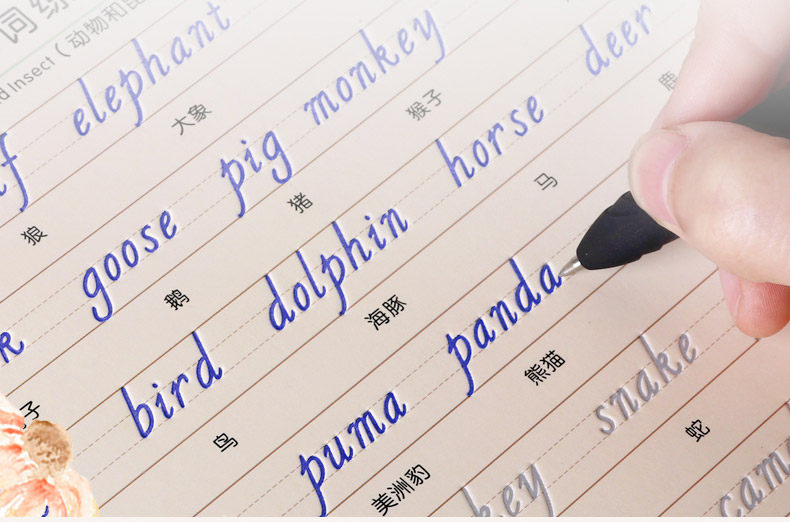 词
d Insect（动物和昆
f elephant
狼 大象
goose pig monkey
鹅 猪 猴子
bird dolphin horse deer
子 鸟 海豚 马 鹿
puma panda
美洲豹 熊猫
key snake
蛇
came